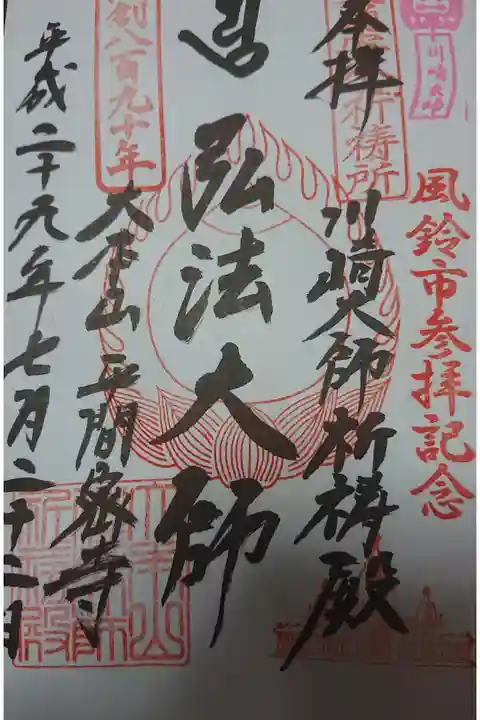 風鈴市参拝記念
川崎大師
奉拝
祈祷所
川崎大師祈祷殿
弘法大師
創八百九十年
大本山 平間密寺
平成二十九年七月二十二日